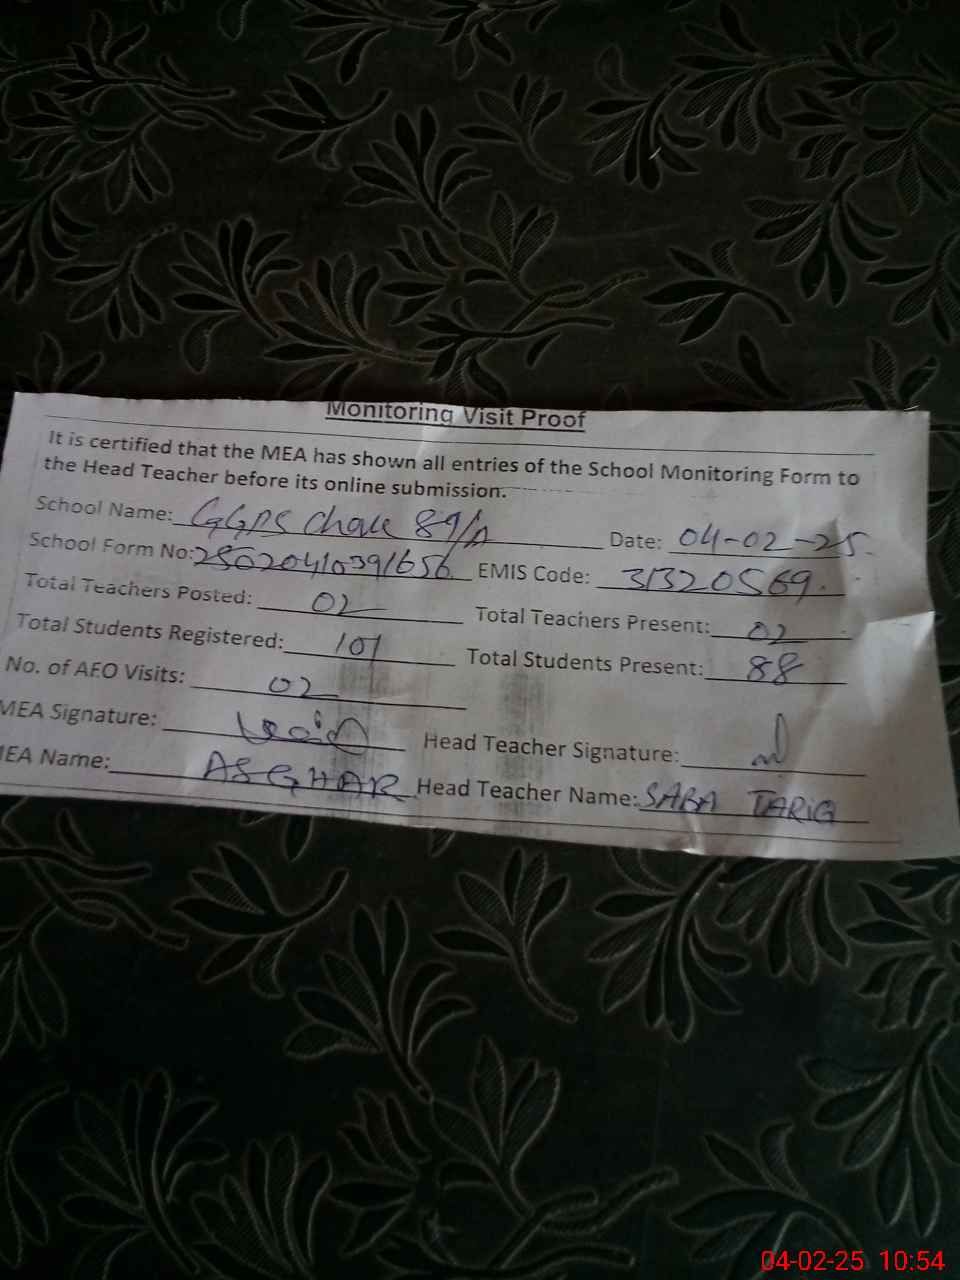 Monitoring Visit Proof
It is certified that the MEA has shown all entries of the School Monitoring Form to
the Head Teacher before its online submission.
School Name: GGPS Chak 89/A Date: 04-02-25
School Form No: 25020410391656 EMIS Code: 31320569
Total Teachers Posted: 02 Total Teachers Present: 02
Total Students Registered: 101 Total Students Present: 88
No. of AEO Visits: 02
MEA Signature: Head Teacher Signature:
MEA Name: ASGHAR Head Teacher Name: SABA TARIG
04-02-25 10:54